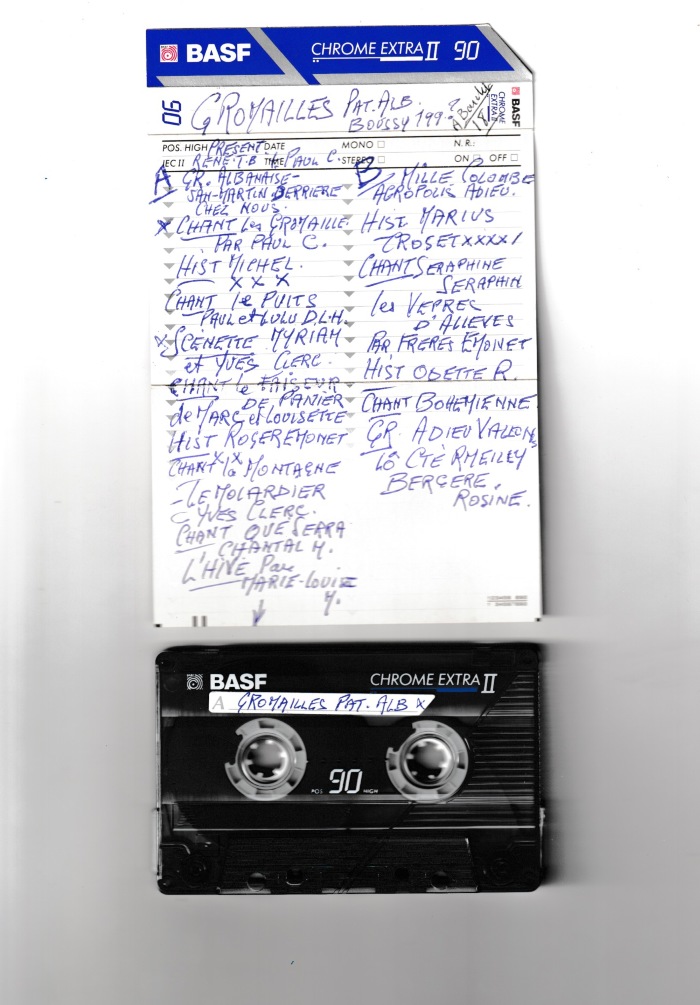 BASF CHROME EXTRA II 90
90 GROMAILLES PAT. ALB.
BOUSSY 199 ?
BASF
CHROME
EXTRA II
POS. HIGH PRESENT DATE MONO N.R.:
IEC II RENE T.B TIME PAUL C. STEREO ON OFF
A GR. ALBANAISE-
SAN-MARTIN DERRIERE
CHEZ NOUS.
X CHANT Les GROMAILLE
PAR PAUL C.
HIST MICHEL.
X X X
CHANT le PUITS
PAUL et LULU D.L.H.
X SCENETTE MYRIAM
et YVES CLERC.
CHANT le FAISEUR
DE PANIER
de MARC et LOUISETTE
HIST ROGER EMONET
X X
CHANT la MONTAGNE
- LE MOLARDIER
YVES CLERC.
CHANT QUE SERRA
CHANTAL M.
L'HIVE Par
MARIE-LOUISE
M.
B MILLE COLOMBE
AGROPOLIS ADIEU.
HIST MARIUS
CROSET XXXX
CHANT SERAPHINE
SERAPHIN
les VEPREC
D'ALLEVES
PAR FRERES EMONET
HIST ODETTE R.
CHANT BOHEMIENNE
GR. ADIEU VALLONS
LA CTE RMEILLY
BERGERE.
ROSINE.
BASF CHROME EXTRA II
A GROMAILLES PAT. ALB X
POS 90 HIGH